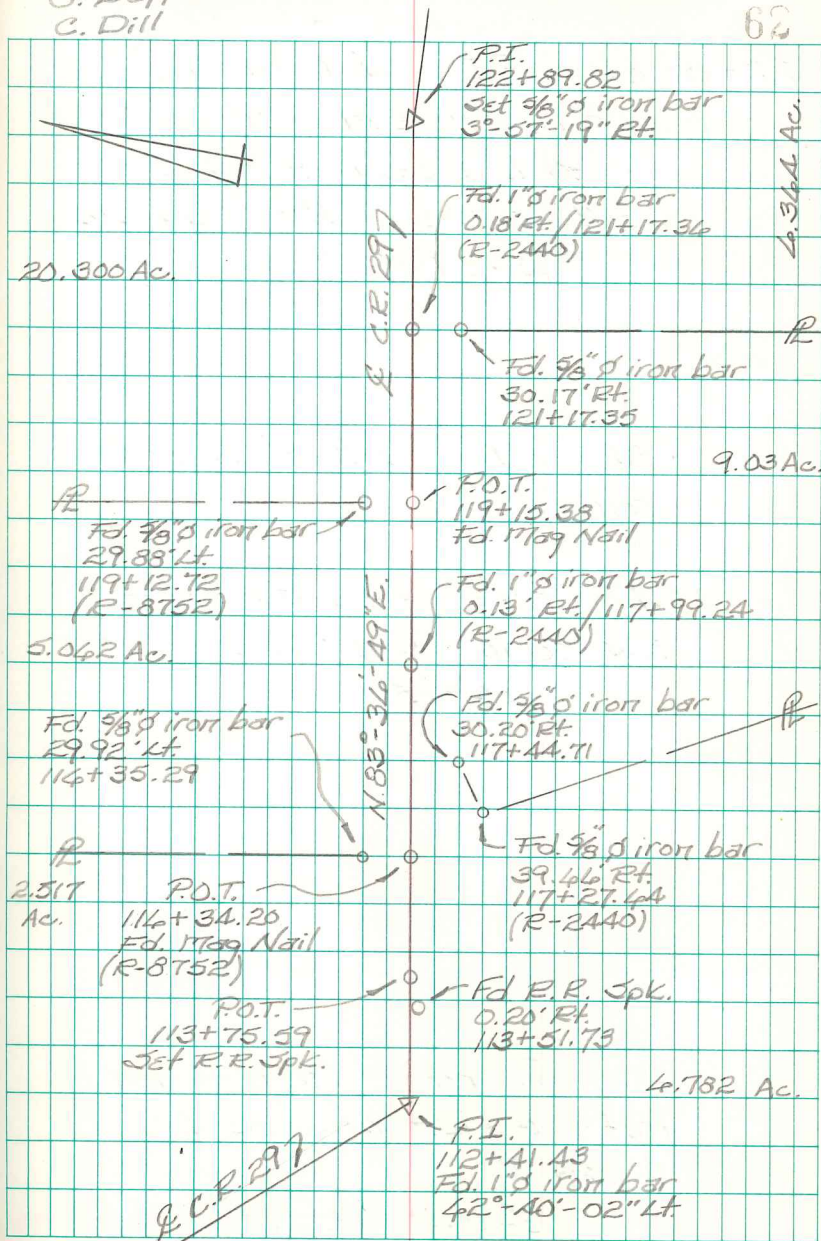 C. Dill
62
P.I.
122+89.82
Set 5/8"ø iron bar
3°-57'-19" Rt.
6.364 Ac.
Fd. 1"ø iron bar
0.18' Rt./121+17.36
(R-2440)
20.300 Ac.
℄ C.R. 297
PL
Fd. 5/8"ø iron bar
30.17' Rt.
121+17.35
9.03 Ac.
PL
P.O.T.
119+15.38
Fd. Mag Nail
Fd. 5/8"ø iron bar
29.88' Lt.
119+12.72
(R-8752)
N.83°-36'-49"E.
Fd. 1"ø iron bar
0.13' Rt./117+99.24
(R-2440)
5.062 Ac.
Fd. 5/8"ø iron bar
30.20' Rt.
117+44.71
PL
Fd. 5/8"ø iron bar
29.92' Lt.
116+35.29
Fd. 5/8"ø iron bar
39.46' Rt.
117+27.64
(R-2440)
PL
2.517
Ac.
P.O.T.
116+34.20
Fd. Mag Nail
(R-8752)
P.O.T.
113+75.59
Set R.R. Spk.
Fd R.R. Spk.
0.20' Rt.
113+51.73
6.782 Ac.
P.I.
112+41.43
Fd. 1"ø iron bar
62°-40'-02" Lt.
℄ C.R. 297